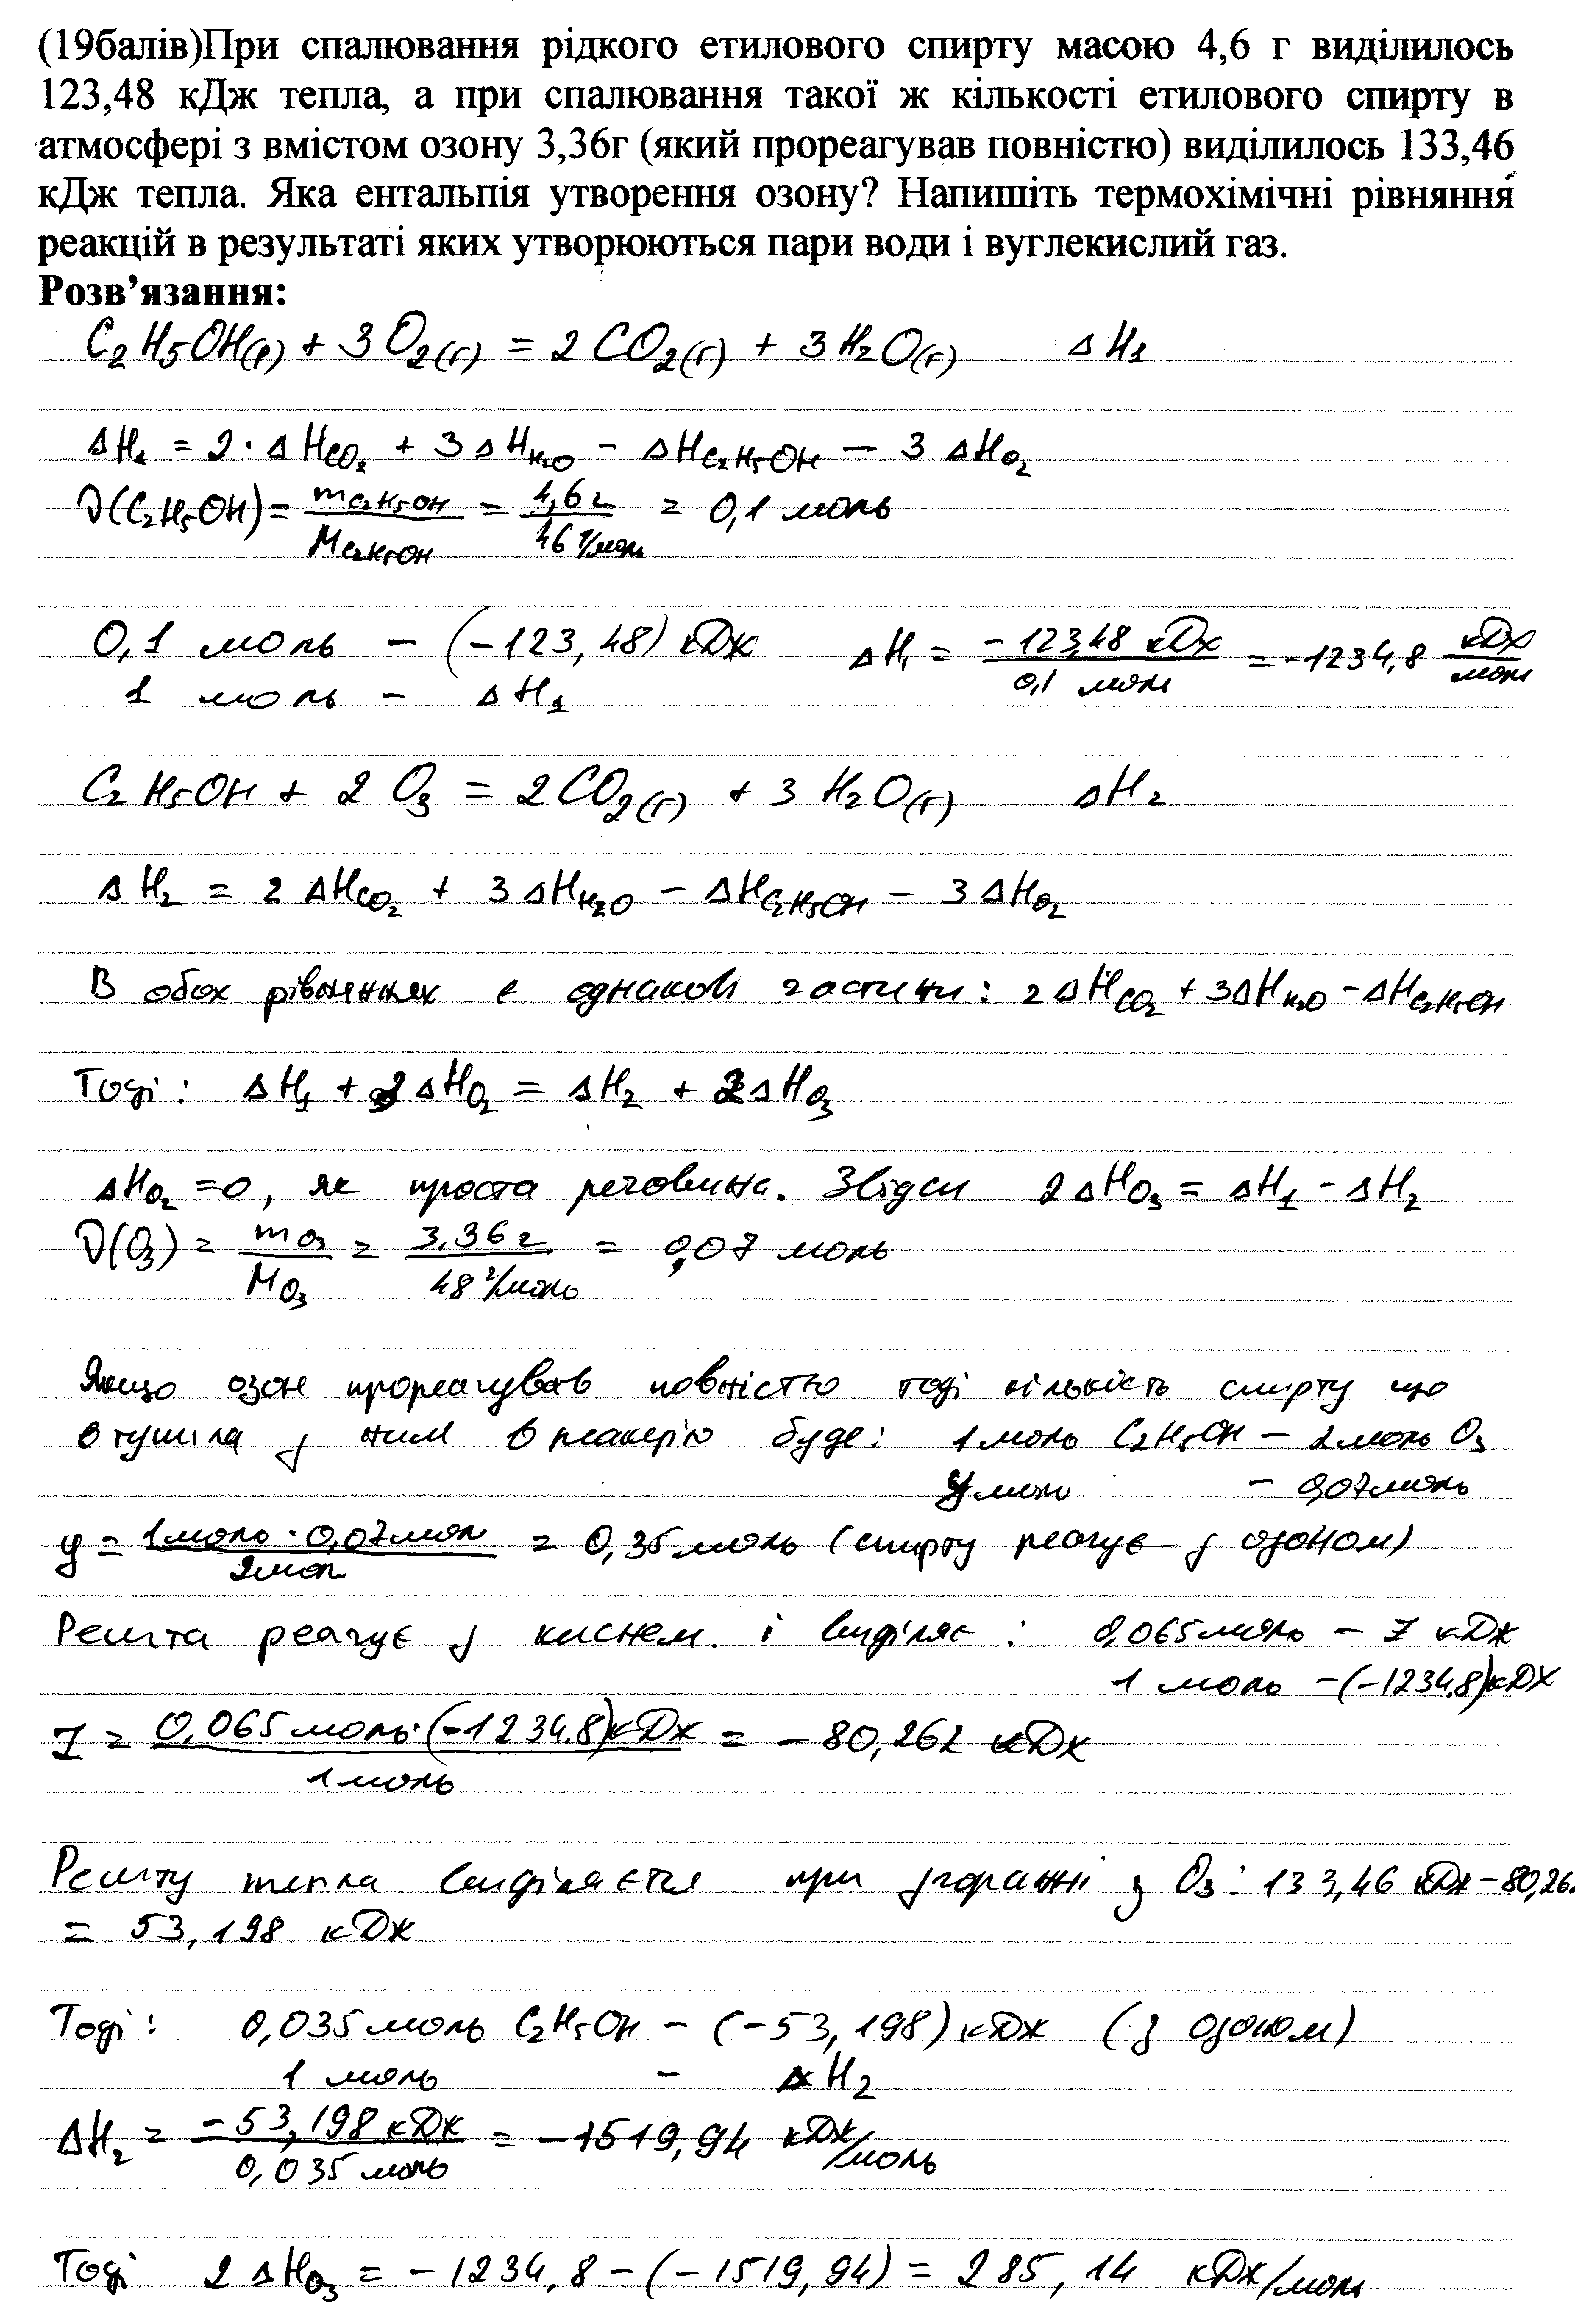 (19балів)При спалювання рідкого етилового спирту масою 4,6 г виділилось
123,48 кДж тепла, а при спалювання такої ж кількості етилового спирту в
атмосфері з вмістом озону 3,36г (який прореагував повністю) виділилось 133,46
кДж тепла. Яка ентальпія утворення озону? Напишіть термохімічні рівняння
реакцій в результаті яких утворюються пари води і вуглекислий газ.
Розв'язання:
C₂H₅OH(р) + 3O₂(г) = 2CO₂(г) + 3H₂O(г) ΔH₁
ΔH₁ = 2·ΔH_CO₂ + 3ΔH_H₂O − ΔH_C₂H₅OH − 3ΔH_O₂
ϑ(C₂H₅OH) = m_C₂H₅OH / M_C₂H₅OH = 4,6г / 46 г/моль = 0,1 моль
0,1 моль − (−123,48) кДж ΔH₁ = −123,48 кДж / 0,1 моль = −1234,8 кДж/моль
1 моль − ΔH₁
C₂H₅OH + 2O₃ = 2CO₂(г) + 3H₂O(г) ΔH₂
ΔH₂ = 2ΔH_CO₂ + 3ΔH_H₂O − ΔH_C₂H₅OH − 3ΔH_O₂
В обох рівняннях є однакові частини: 2ΔH_CO₂ + 3ΔH_H₂O − ΔH_C₂H₅OH
Тоді: ΔH₁ + ΔH_O₂ = ΔH₂ + 2ΔH_O₃
ΔH_O₂ = 0, як проста речовина. Звідси 2ΔH_O₃ = ΔH₁ − ΔH₂
ϑ(O₃) = m_O₃ / M_O₃ = 3,36г / 48 г/моль = 0,07 моль
Якщо озон прореагував повністю тоді кількість спирту що
вступила з ним в реакцію буде: 1моль C₂H₅OH − 2моль O₃
y моль − 0,07моль
y = 1моль·0,07моль / 2моль = 0,35моль (спирту реагує з озоном)
Решта реагує з киснем. і виділяє: 0,065моль − Z кДж
1 моль − (−1234,8)кДж
Z = 0,065моль·(−1234,8)кДж / 1моль = −80,262 кДж
Решту тепла виділяється при згоранні з O₃: 133,46 кДж − 80,26
= 53,198 кДж
Тоді: 0,035моль C₂H₅OH − (−53,198) кДж (з озоном)
1 моль − ΔH₂
ΔH₂ = −53,198 кДж / 0,035 моль = −1519,94 кДж/моль
Тоді 2ΔH_O₃ = −1234,8 − (−1519,94) = 285,14 кДж/моль